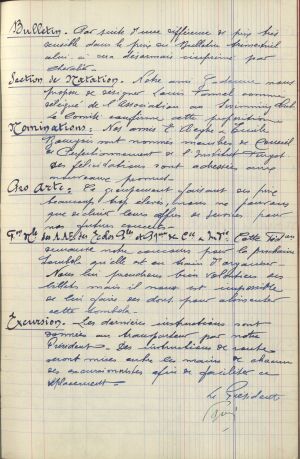 Bulletin. - Par suite d'une différence de prix très
sensible dans le prix du Bulletin trimestriel
celui-ci sera désormais imprimé par
Section de Natation. - Notre ami nous
propose de désigner Louis comme
délégué de l'Association au Swimming Club
le Comité confirme cette proposition
Nominations: - Nos amis
sont nommés membres du Conseil
de Perfectionnement de l'Institut Turgot.
Des félicitations sont adressées aux
nouveaux promus.
Pro Arte. - Ce groupement faisant des prix
beaucoup trop élevés, nous ne pouvons
que décliner leurs offres de services pour
nos futurs concerts.
des A.A. des Cette
demande notre concours pour la prochaine
tombola qu'elle est en train d'organiser.
Nous lui prendrions bien volontiers des
billets mais il nous est impossible
de lui faire des dons pour alimenter
cette tombola.
Excursion. - Les dernières instructions sont
données au transporteur par notre
Président. - Des instructions de route
seront mises entre les mains de chacun
des excursionnistes afin de faciliter ce
déplacement.
Le Président